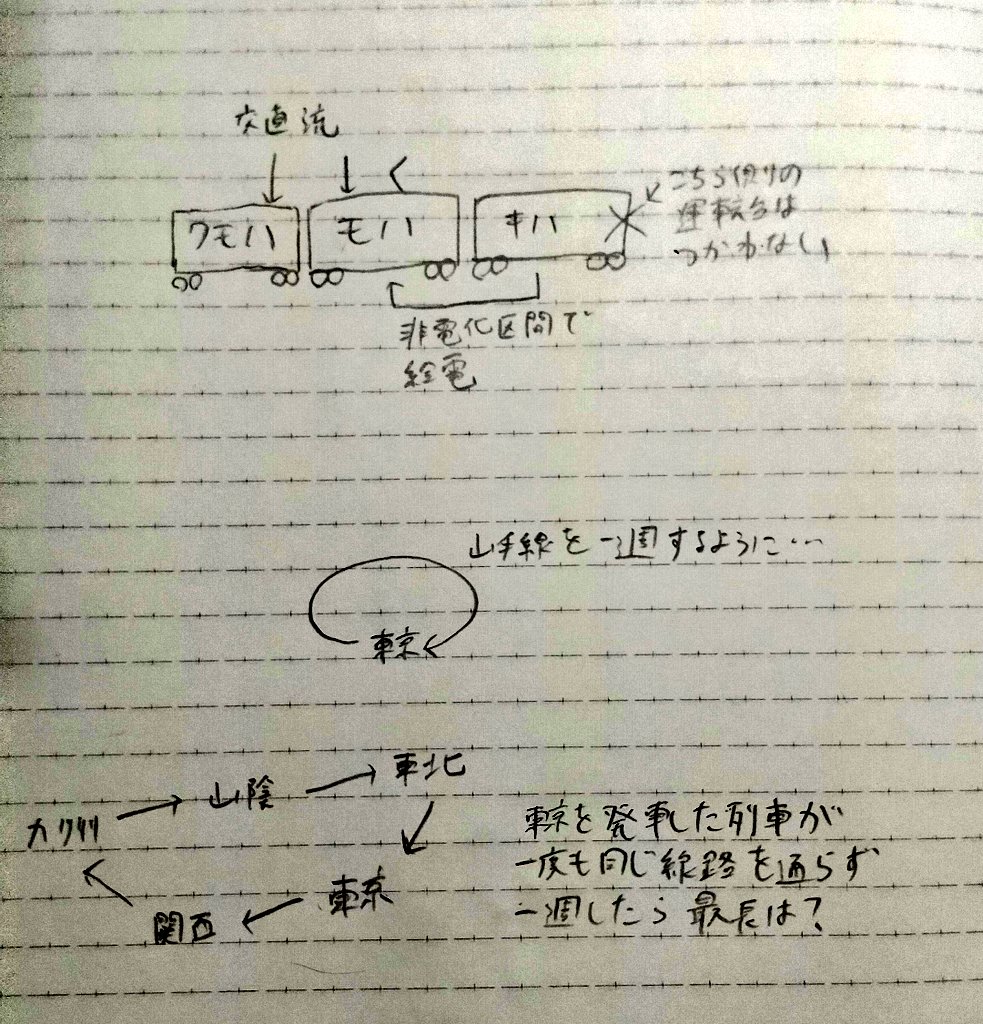 交直流
クモハ
モハ
キハ
こちら側の
運転台は
つかわない
非電化区間で
給電
山手線を一週するように…
東京
東北
山陰
九州
関西
東京
東京を発車した列車が
一度も同じ線路を通らず
一週したら最長は?